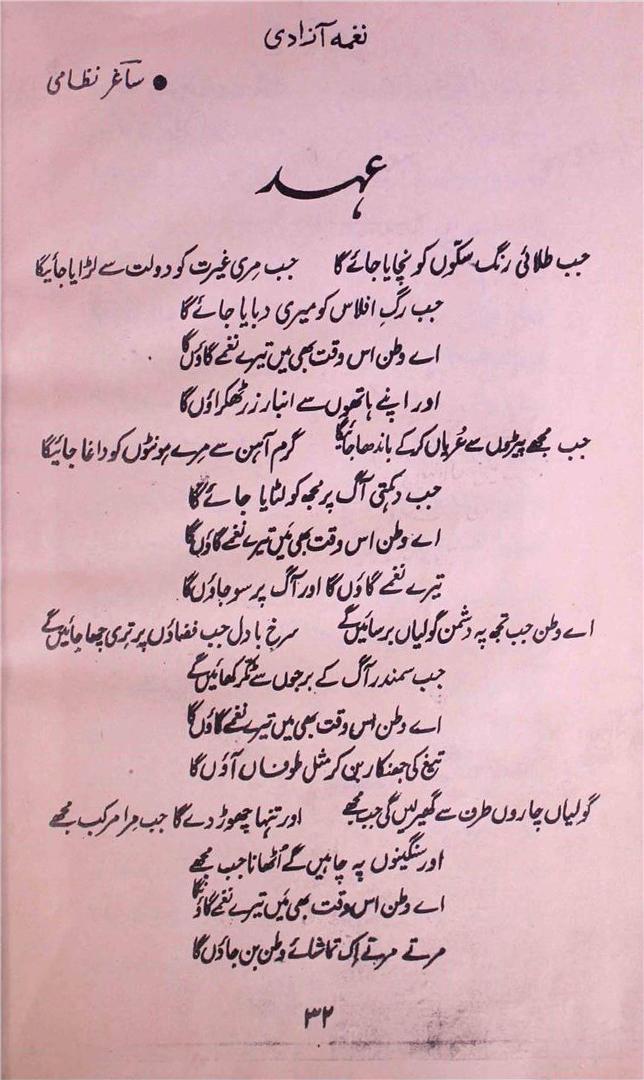 نغمہ آزادی
● ساغر نظامی
عہد
جب طلائی رنگ سکّوں کو نچایا جائے گا جب مری غیرت کو دولت سے لڑایا جائیگا
جب رگِ افلاس کو میری دبایا جائے گا
اے وطن اس وقت بھی میں تیرے نغمے گاؤں گا
اور اپنے ہاتھوں سے انبار زر ٹھکراؤں گا
جب مجھے پیڑوں سے عُریاں کر کے باندھا جائیگا گرم آہن سے مرے ہونٹوں کو داغا جائیگا
جب دہکتی آگ پر مجھ کو لٹایا جائے گا
اے وطن اس وقت بھی میں تیرے نغمے گاؤں گا
تیرے نغمے گاؤں گا اور آگ پر سو جاؤں گا
اے وطن جب تجھ پہ دشمن گولیاں برسائیں گے سرخ بادل جب فضاؤں پر تری چھا جائیں گے
جب سمندر آگ کے برجوں سے ٹکر کھائیں گے
اے وطن اس وقت بھی میں تیرے نغمے گاؤں گا
تیغ کی جھنکار بن کر مثل طوفاں آؤں گا
گولیاں چاروں طرف سے گھیر لیں گی جب مجھے اور تنہا چھوڑ دے گا جب مرا مرکب مجھے
اور سنگینوں پہ چاہیں گے اُٹھانا جب مجھے
اے وطن اس وقت بھی میں تیرے نغمے گاؤں گا
مرتے مرتے اِک تماشائے وطن بن جاؤں گا
۳۲